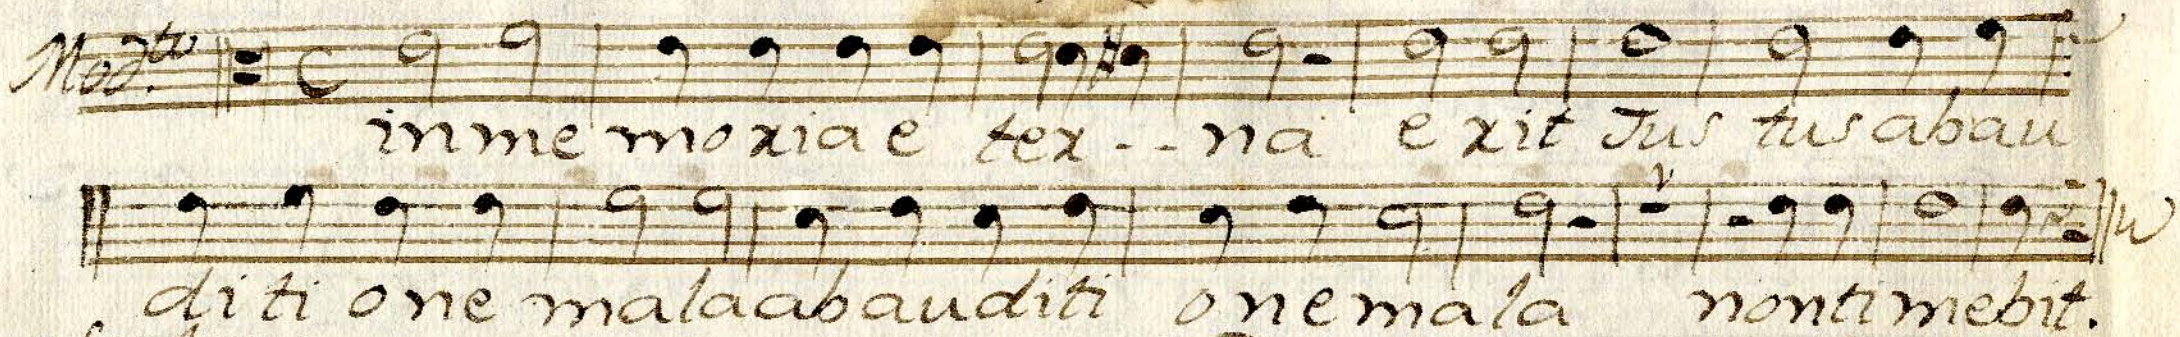 Mod.to
in me moria e ter - - na erit Jus tus ab au
di ti one mala ab auditi one mala non timebit.